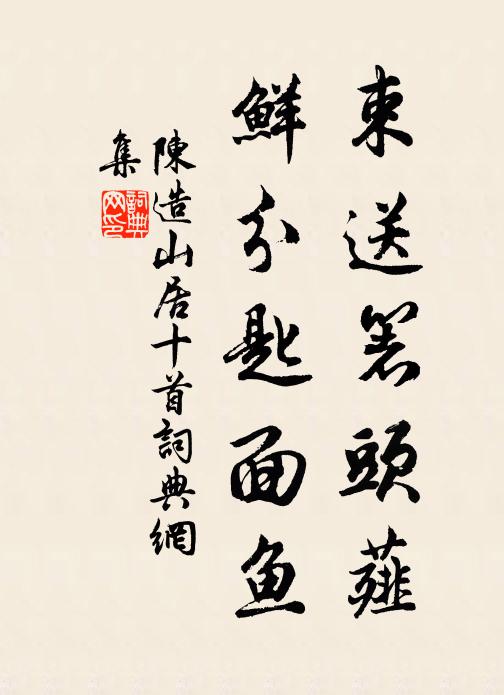 束送箸頭薤
鮮分匙面魚
陳造山居十首詞典網
集
詞典
网印